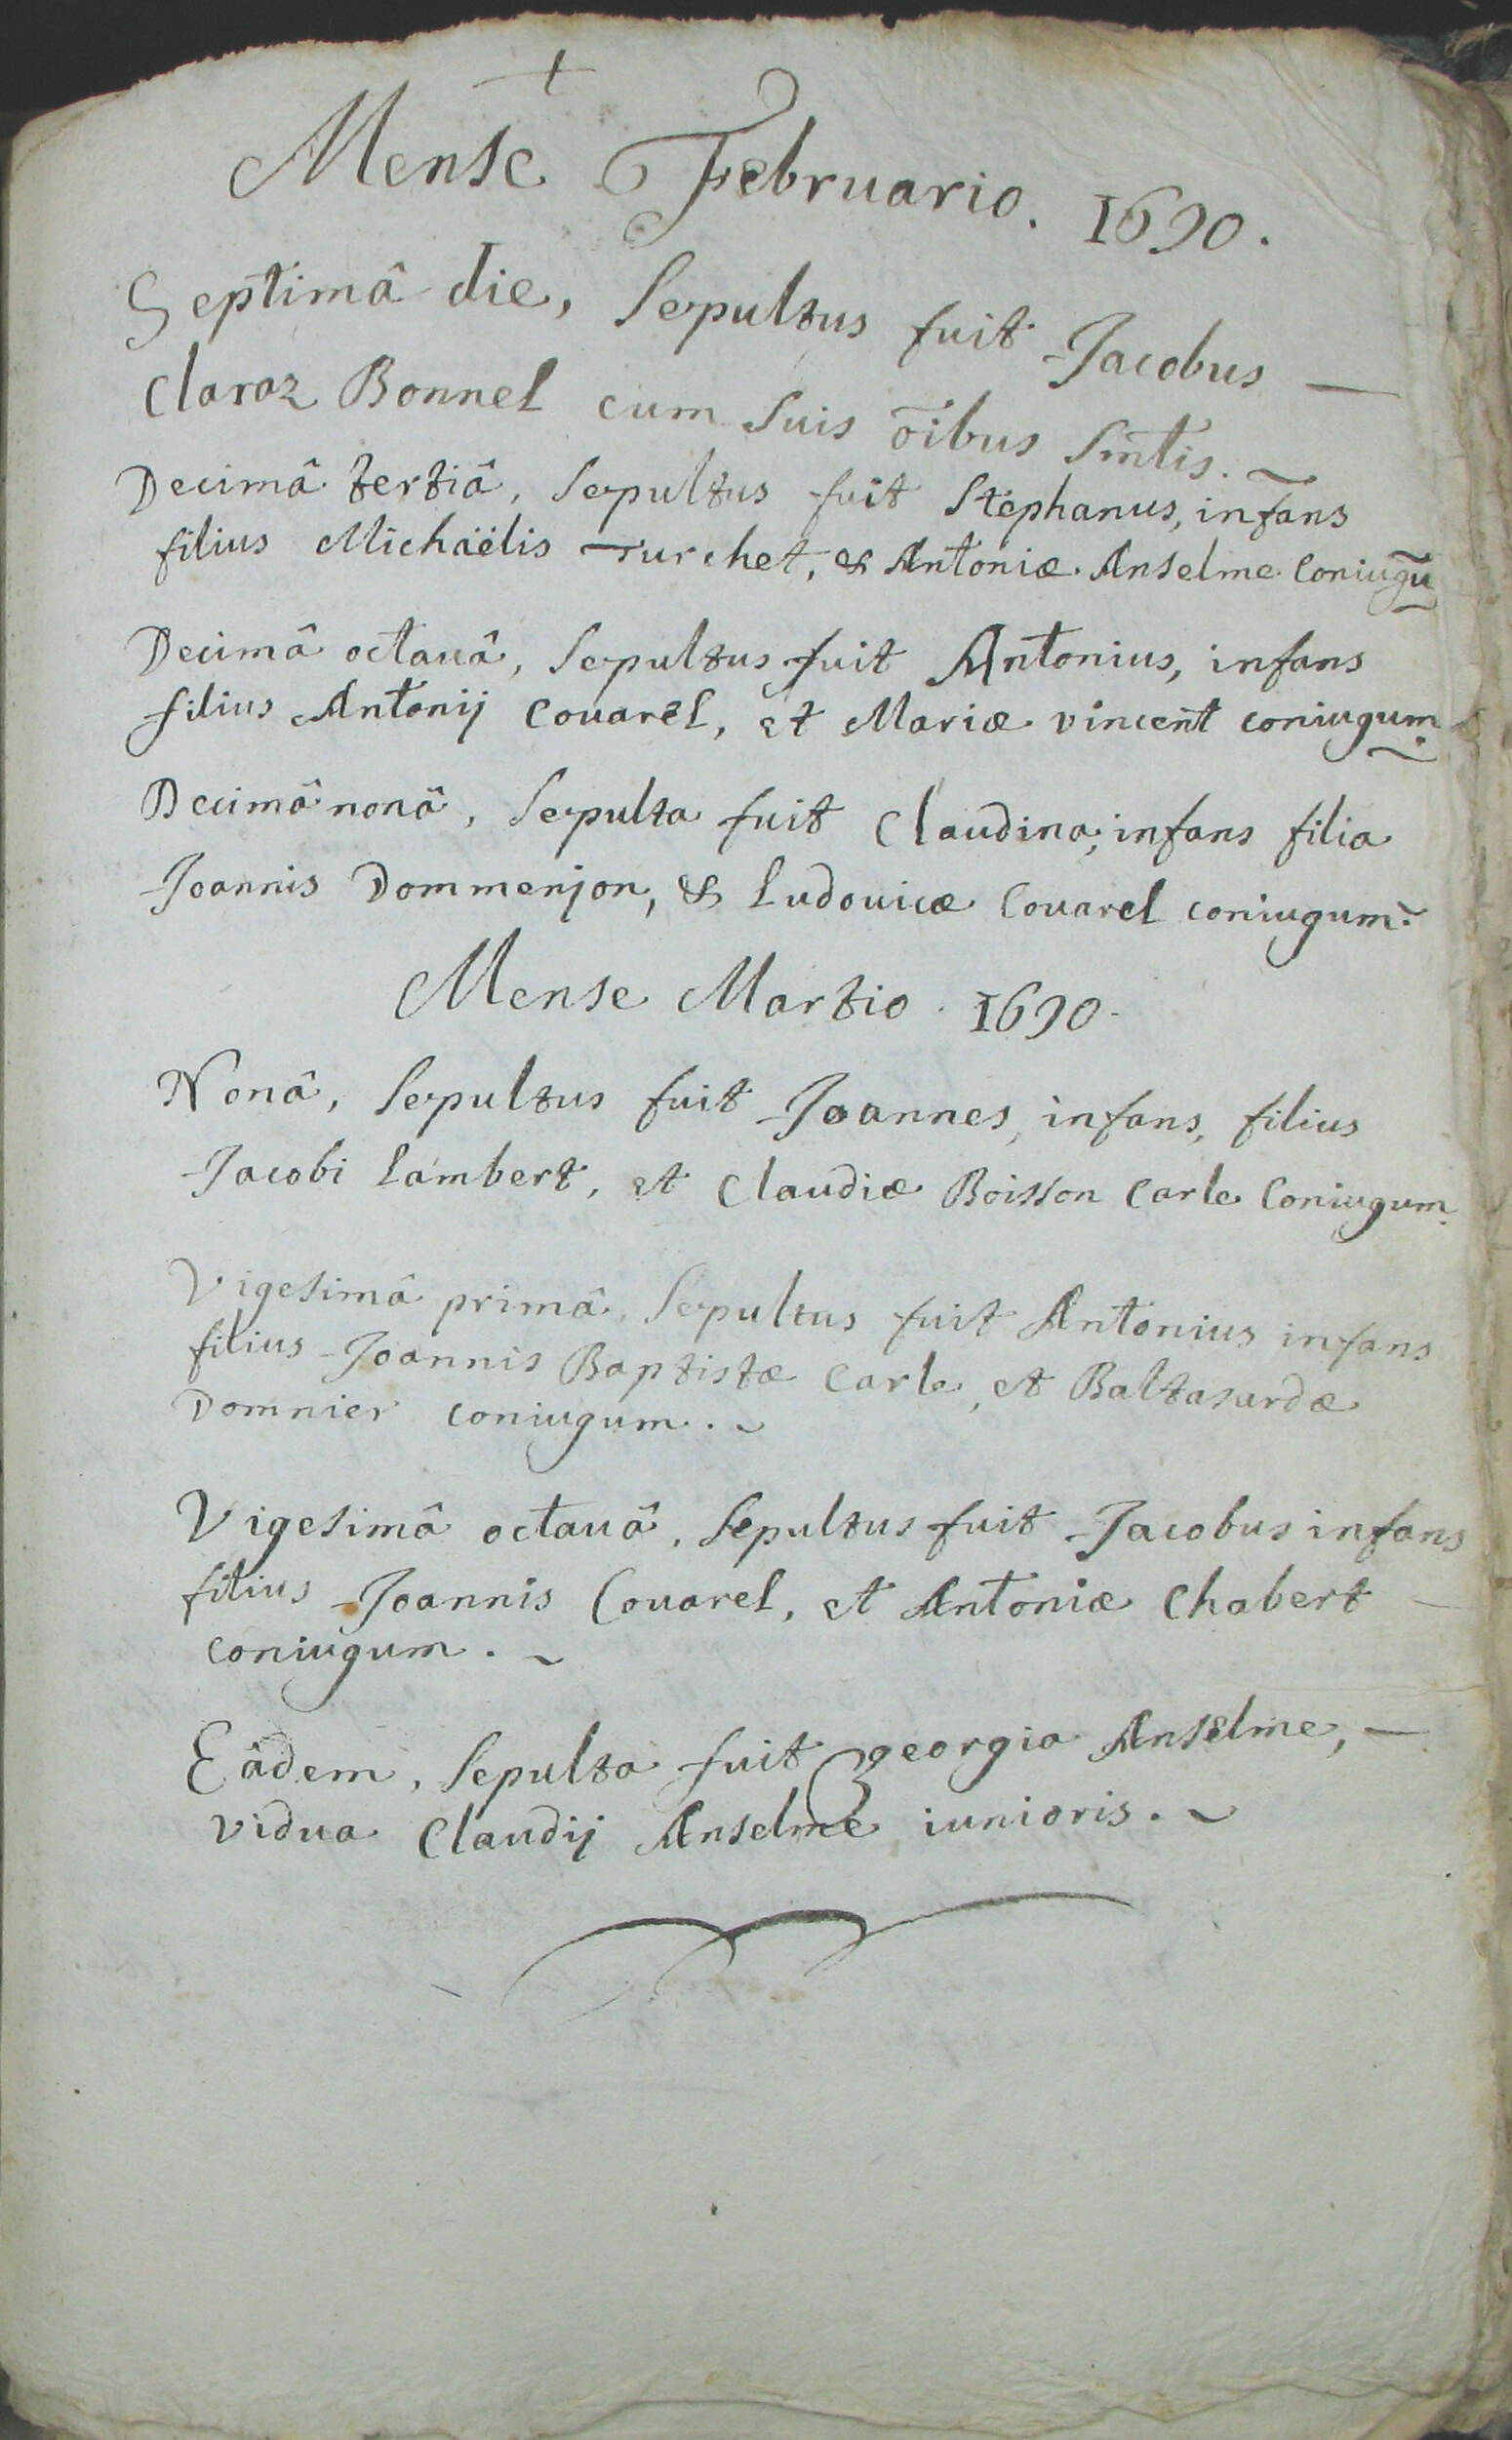 +
Mense Februario. 1690.
Septimâ die, Sepultus fuit Jacobus —
Claraz Bonnel cum suis õibus Smtis. ~
Decimâ tertiâ, Sepultus fuit Stephanus, infans
filius Michaëlis Turchet, & Antoniæ Anselme Coniugũ
Decimâ octauâ, Sepultus fuit Antonius, infans
filius Antonij Couarel, et Mariæ vincent coniugum.
Decimâ nonâ, Sepulta fuit Claudina, infans filia
Joannis Dommenjon, & Ludouicæ Couarel coniugum.
Mense Martio. 1690.
Nonâ, Sepultus fuit Joannes, infans, filius
Jacobi Lambert, et Claudiæ Boisson Carle Coniugum.
Vigesimâ primâ, Sepultus fuit Antonius infans
filius Joannis Baptistæ Carle, et Baltasardæ
Domnier coniugum. ~
Vigesimâ octauâ, Sepultus fuit Jacobus infans
filius Joannis Couarel, et Antoniæ Chabert —
coniugum. ~
Eâdem, Sepulta fuit georgia Anselme, —
vidua Claudij Anselme iunioris. ~